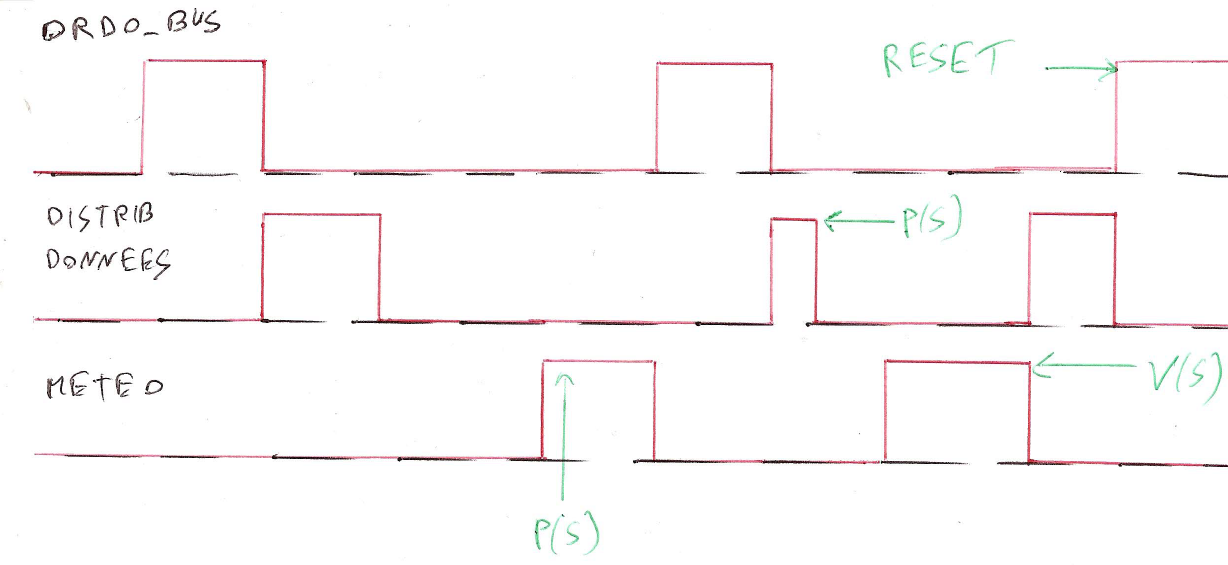 ORDO_BUS
RESET
DISTRIB
DONNEES
P(S)
METEO
V(S)
P(S)